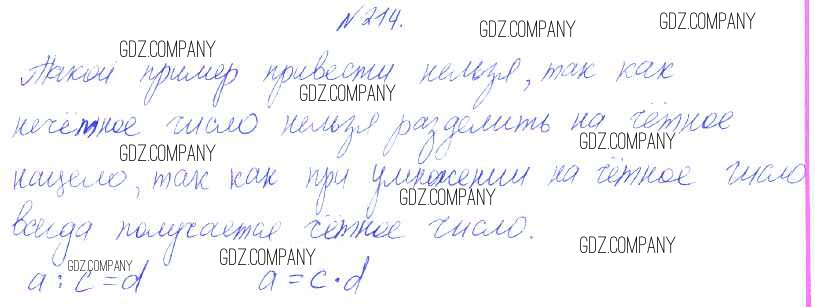 №214.
GDZ.COMPANY GDZ.COMPANY GDZ.COMPANY
Такой пример привести нельзя, так как
GDZ.COMPANY
нечётное число нельзя разделить на чётное
GDZ.COMPANY GDZ.COMPANY
нацело, так как при умножении на чётное число
GDZ.COMPANY
всегда получается чётное число.
GDZ.COMPANY GDZ.COMPANY GDZ.COMPANY
a : c = d a = c · d